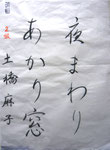 夜まわり
あかり窓
土橋麻子